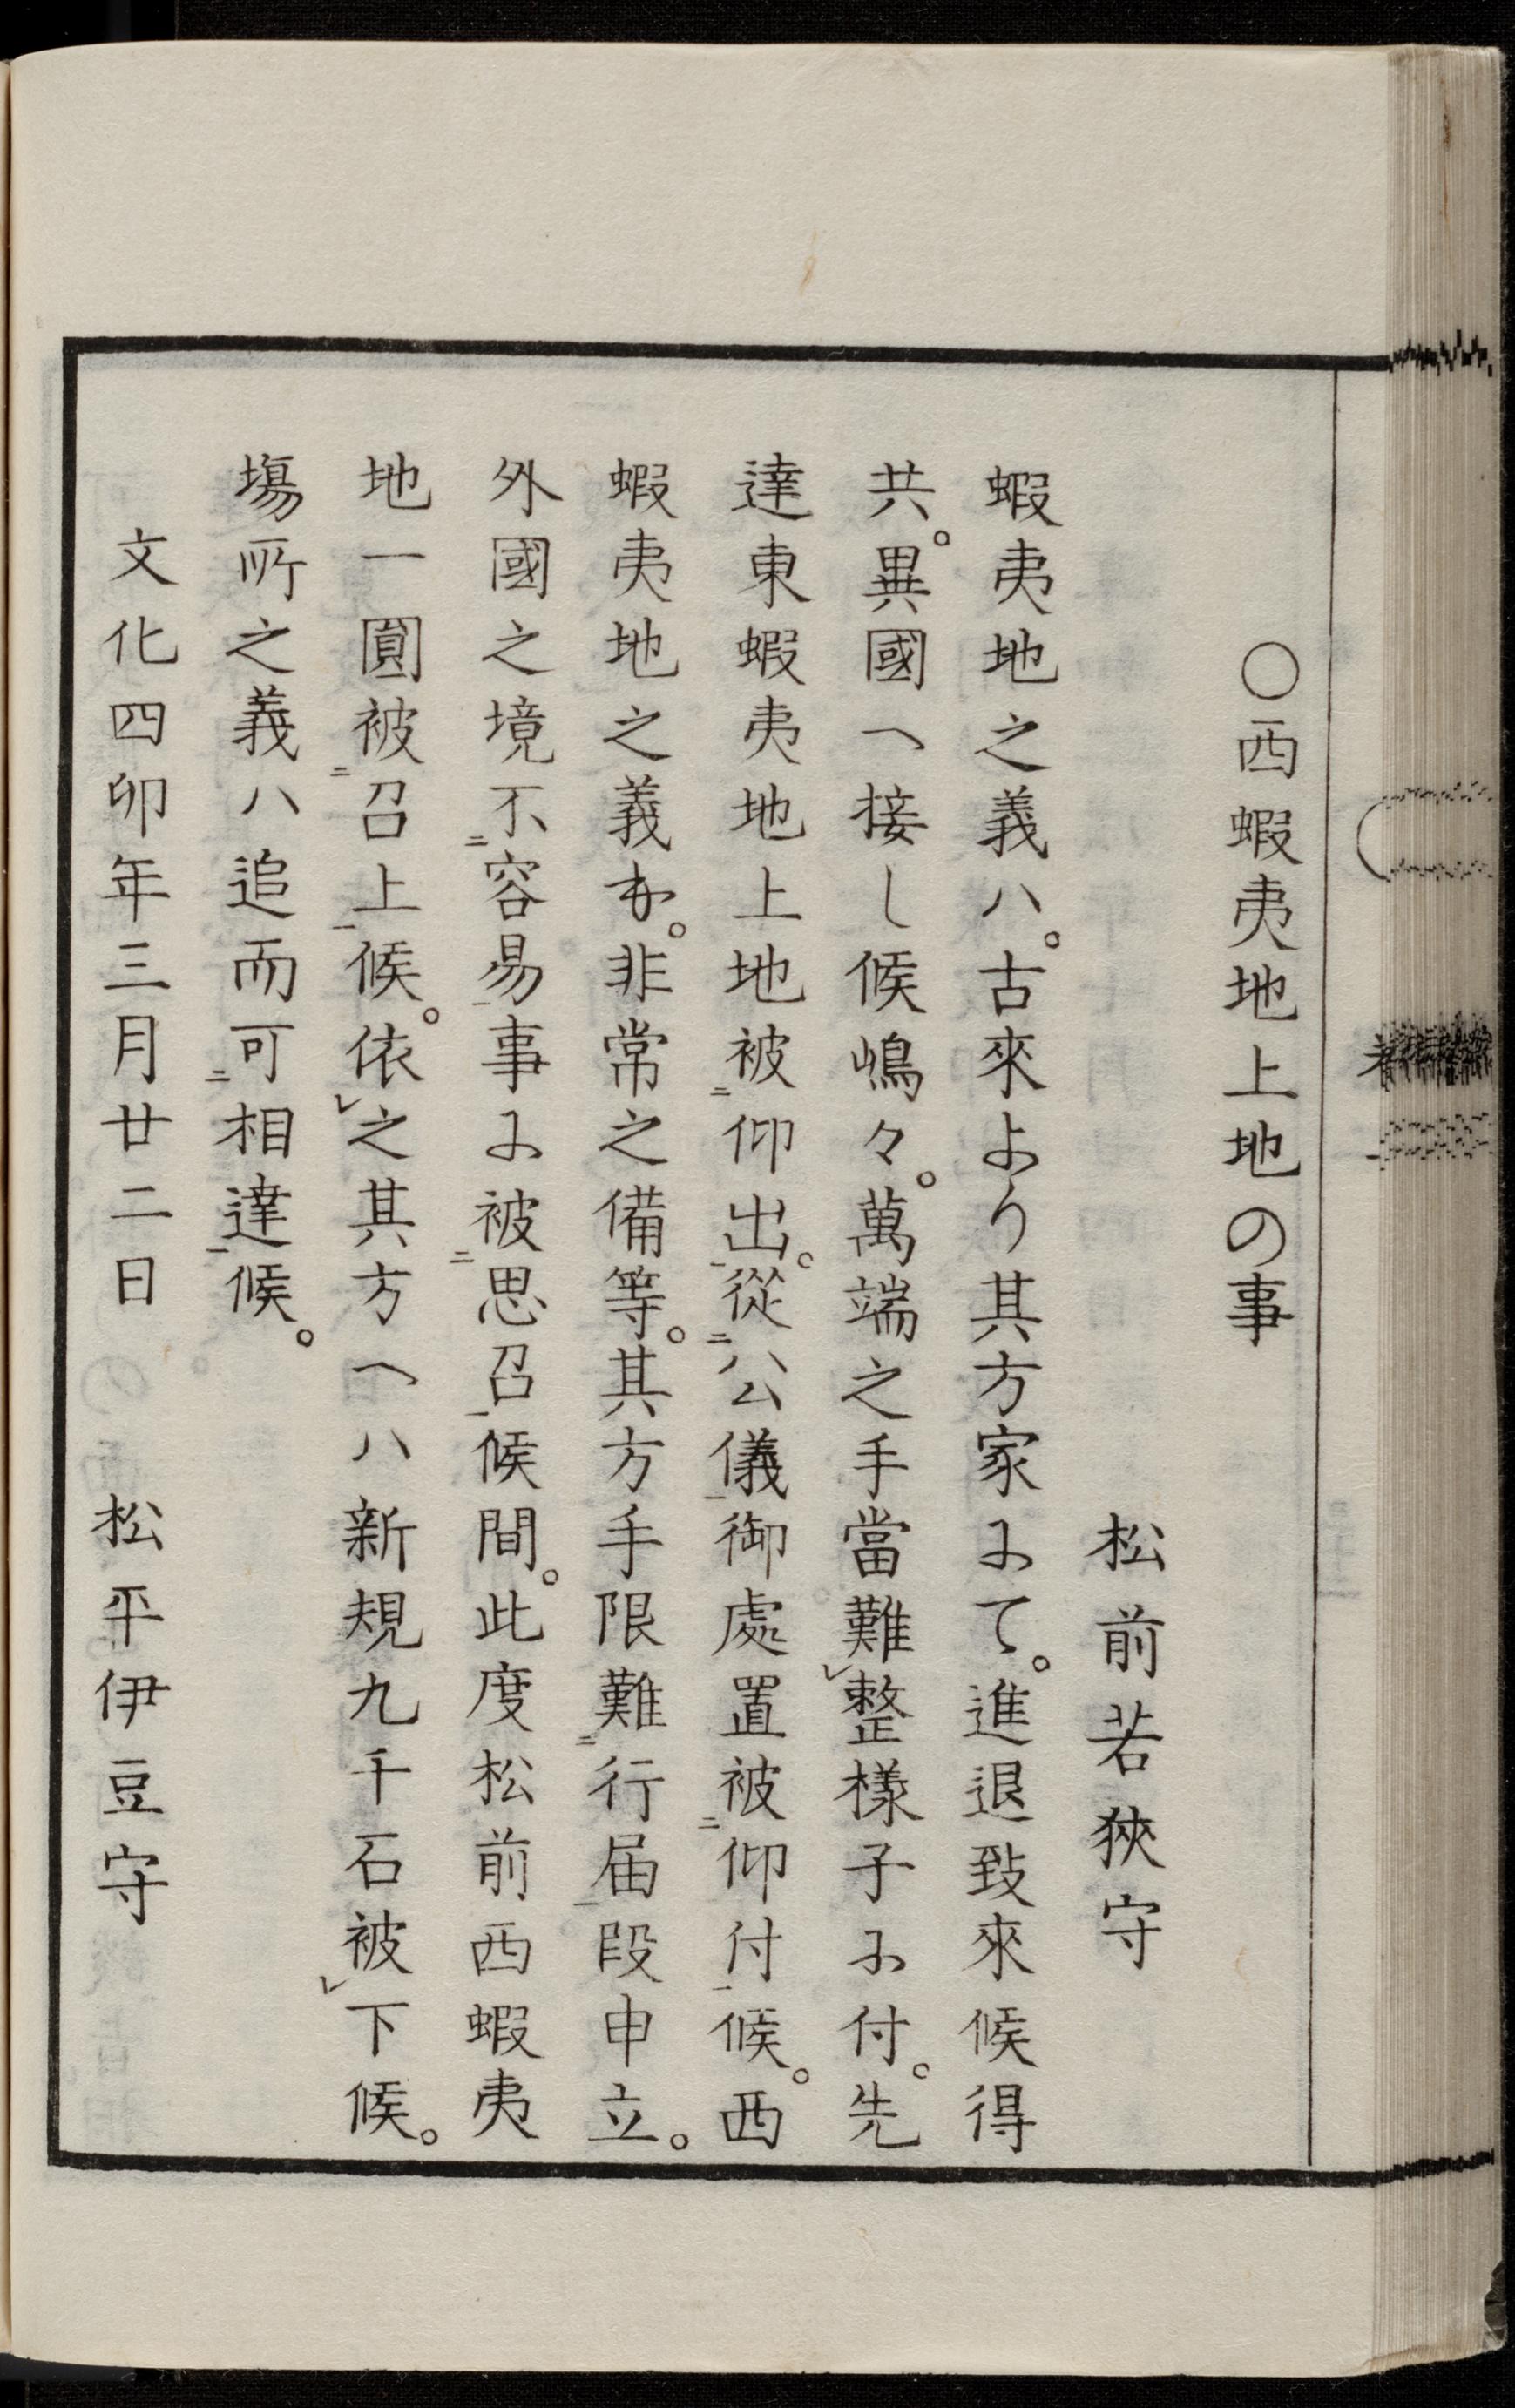 〇西蝦夷地上地の事
松前若狹守
蝦夷地之義ハ。古來より其方家にて。進退致來候得
共。異國へ接し候嶋々。萬端之手當難㆑整樣子に付。先
達東蝦夷地上地被㆓仰出㆒。從㆓公儀㆒御處置被㆓仰付㆒候。西
蝦夷地之義も。非常之備等。其方手限難㆓行届㆒段申立。
外國之境不㆓容易㆒事に被㆓思召㆒候間。此度松前西蝦夷
地一圓被㆓召上㆒候。依㆑之其方へハ新規九千石被㆑下候。
塲所之義ハ追而可㆓相達㆒候。
文化四卯年三月廿二日 松平伊豆守